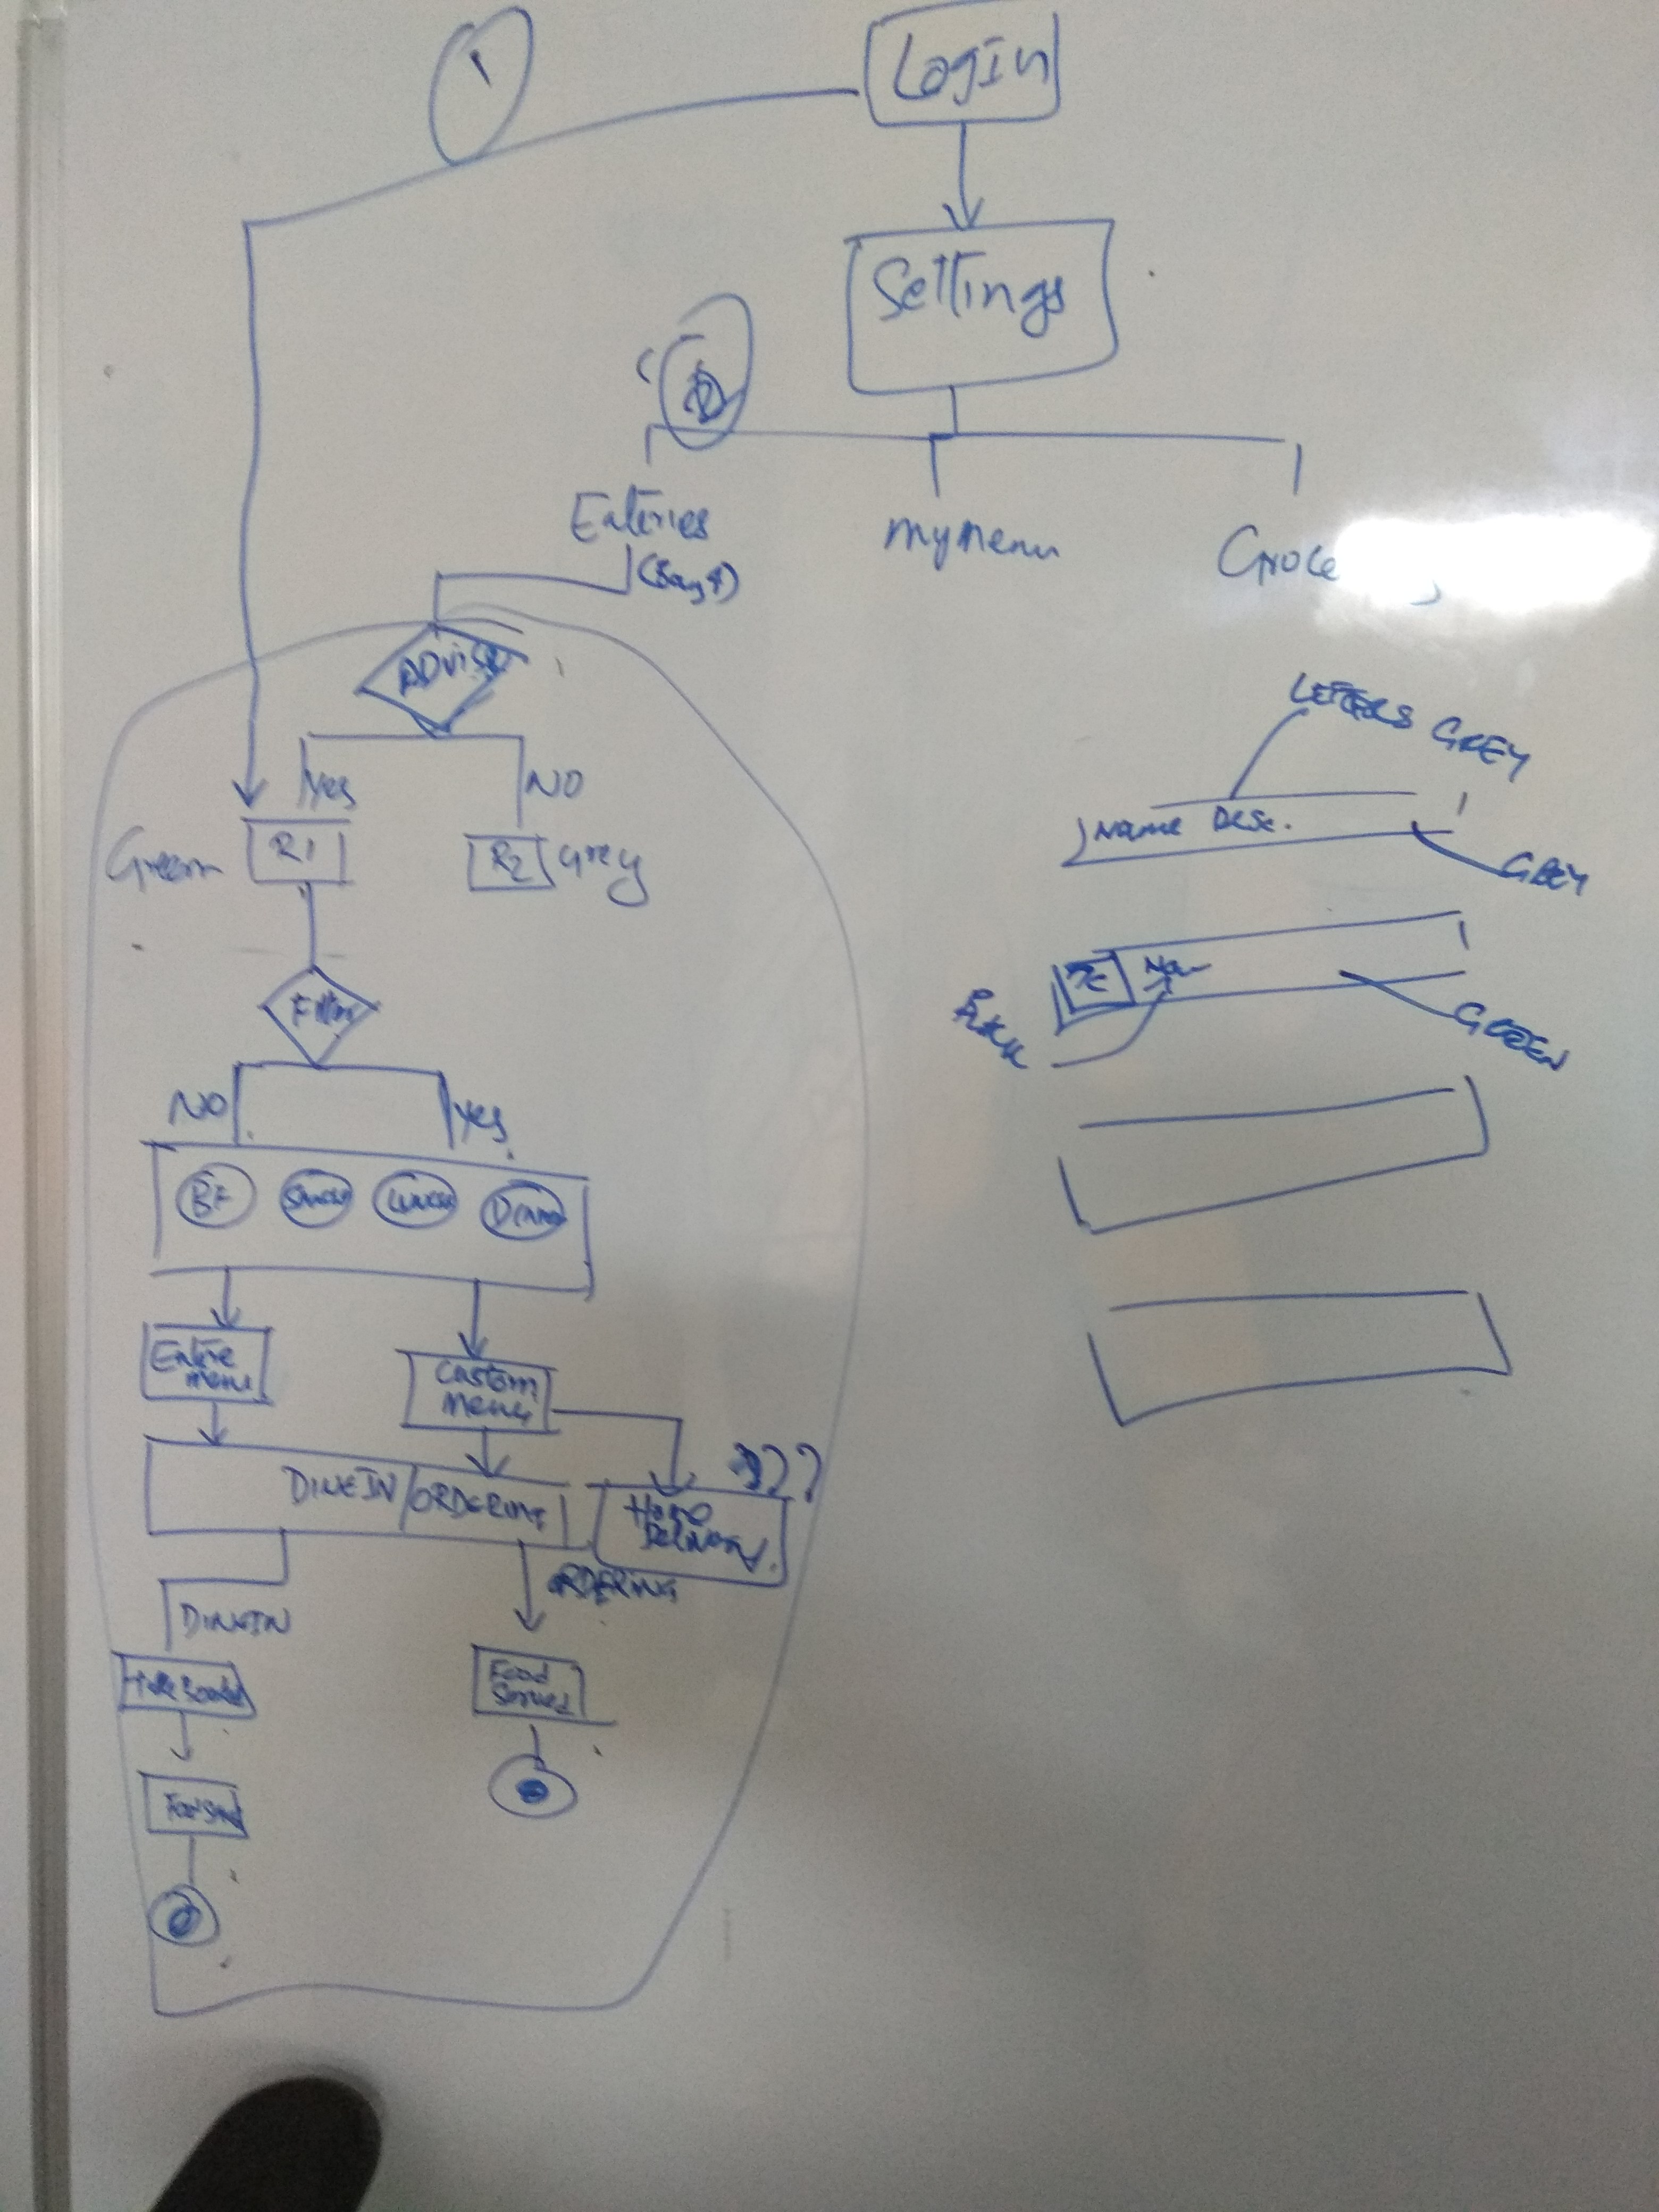 1
Login
Settings
Eateries
mymenu
Groce
Yes
NO
Green
R1
R2
Grey
Filter
NO
Yes
BF
Lunch
Dinner
Entire
menu
Custom
Menu
DINEIN/ORDERING
Home
Delivery
???
DINEIN
ORDERING
Food
Served
LETTERS GREY
Name Desc.
GREY
GREEN